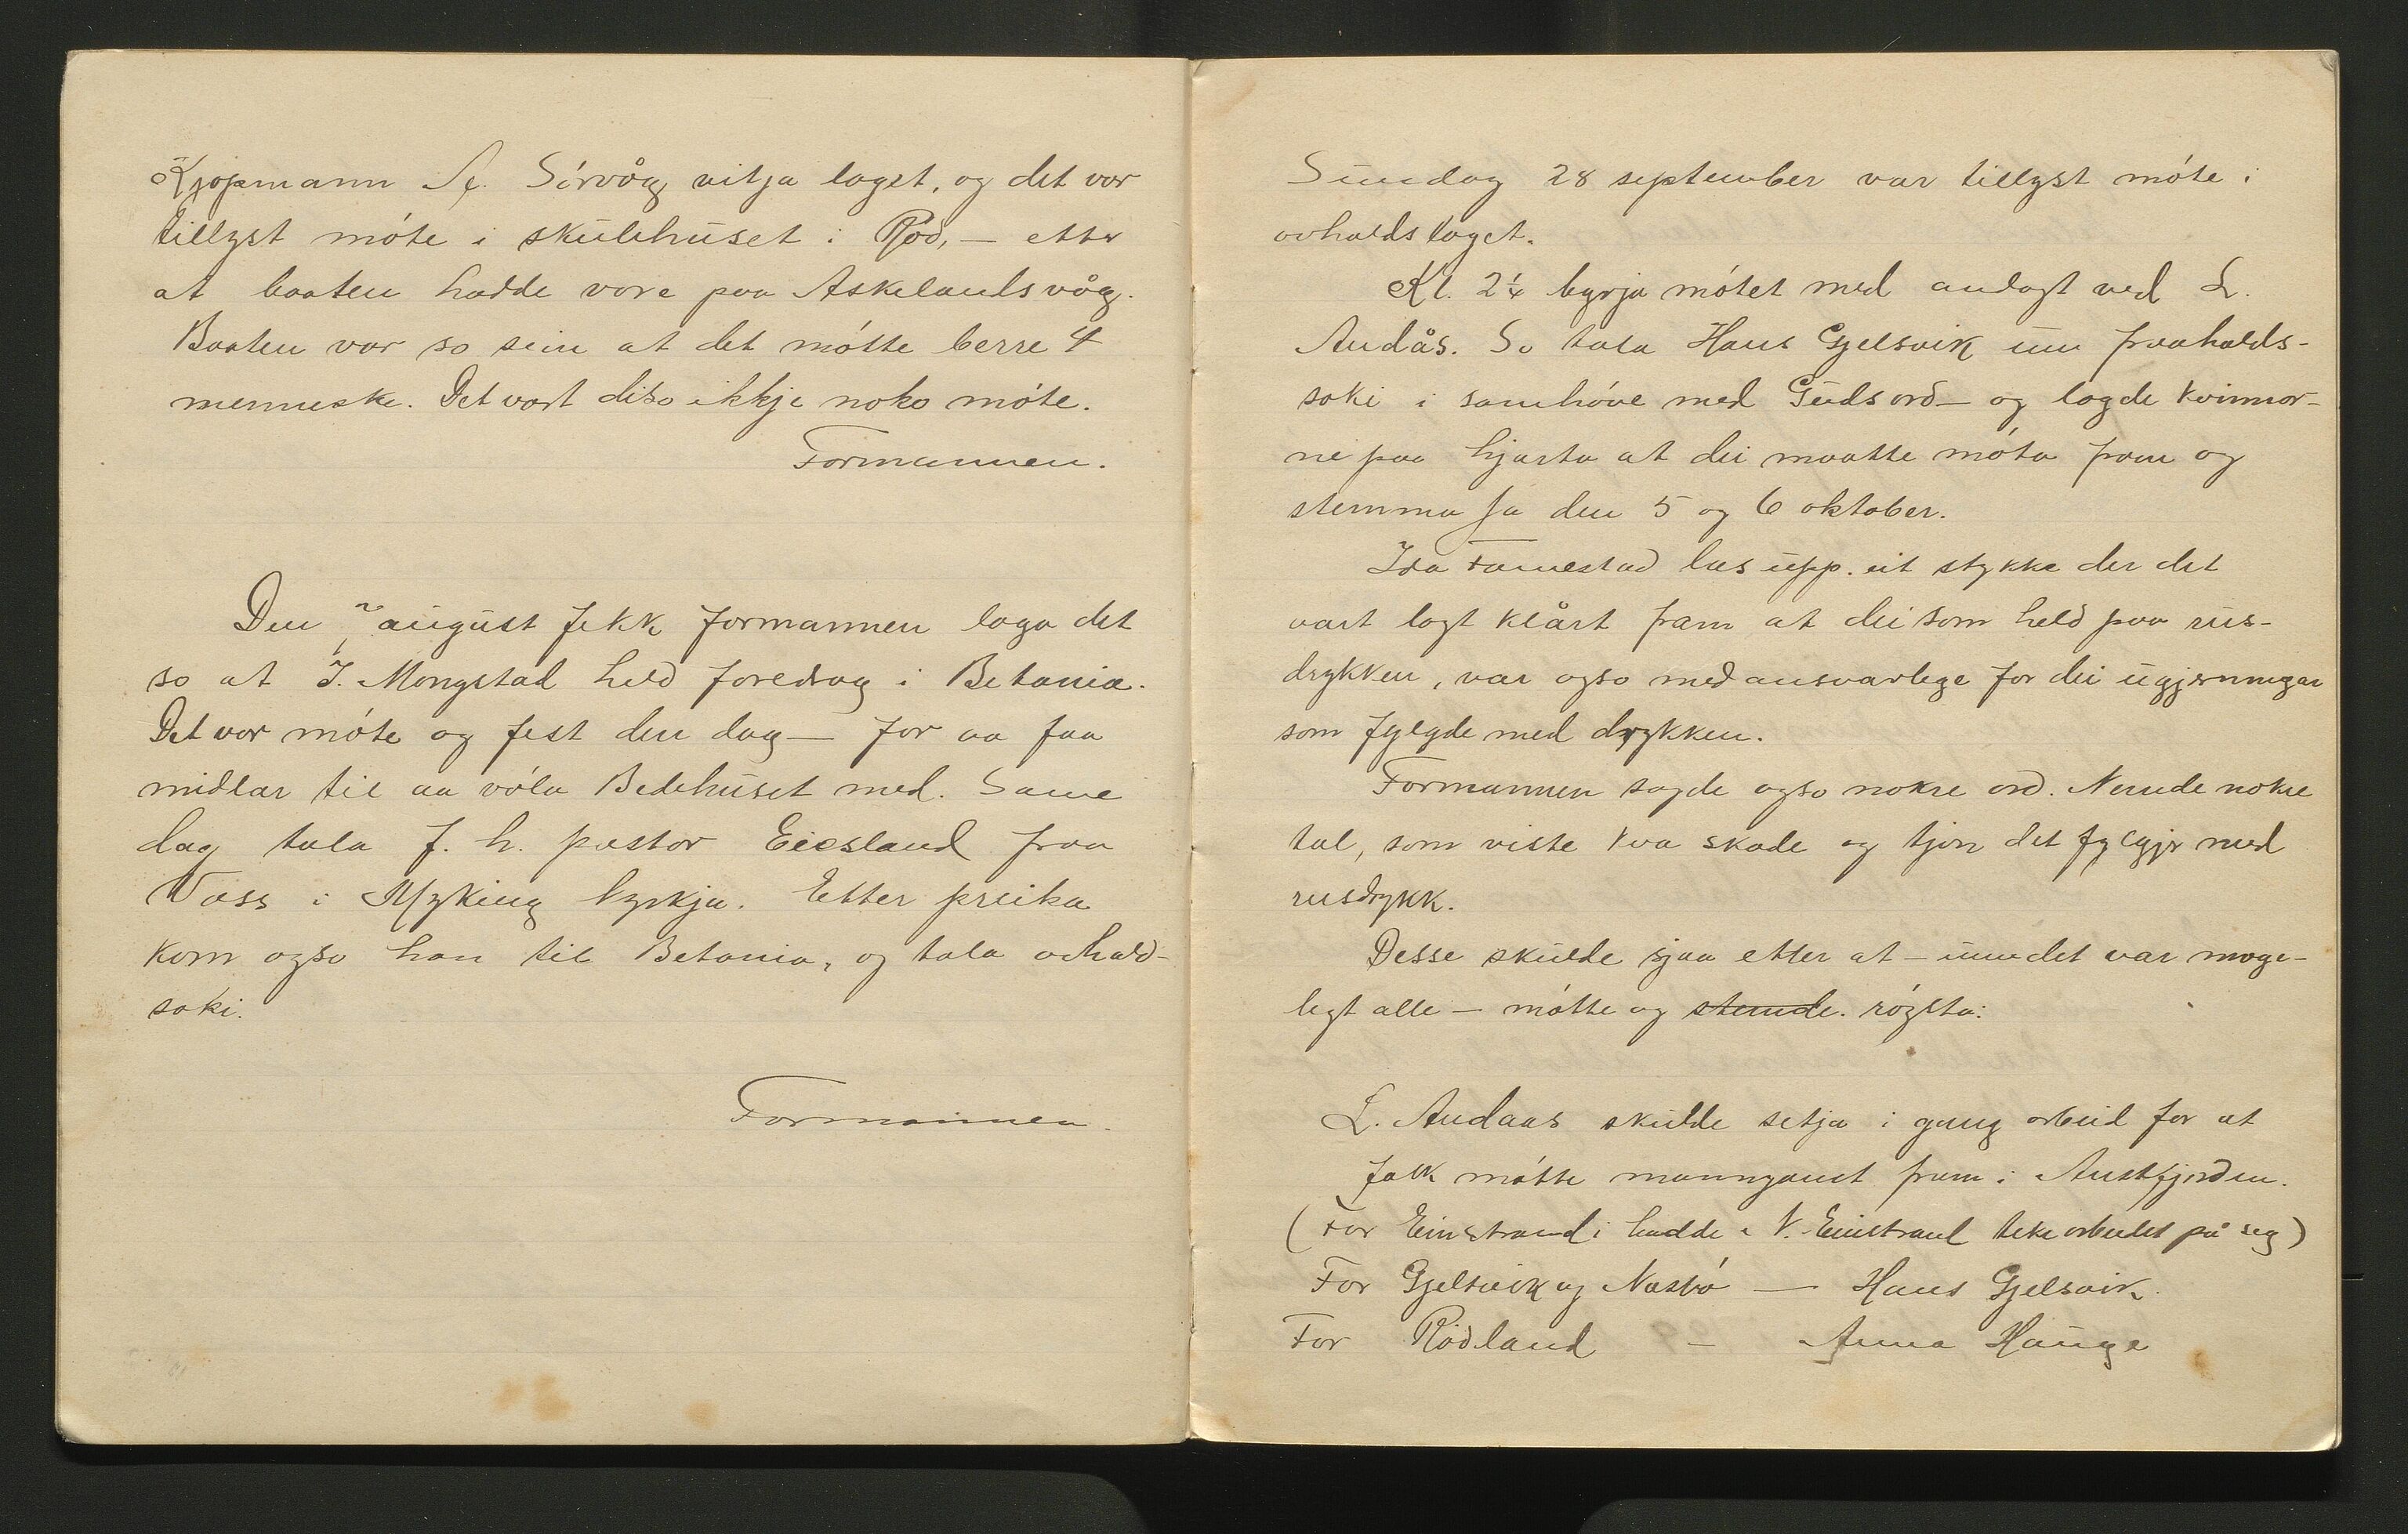 Kjøpmann A. Sórvåg vitja laget, og det var
tillyst móte i skŭlehŭset i Rød, — etter
at baaten hadde vore paa Askelandsvåg.
Baaten var so sein at det mótte berre 4
menneske. Det vart diso ikkje noko móte.
Formannen.
Den ? aŭgŭst fekk formannen laga det
so at I. Mongstad held foredrag i Betania.
Det var móte og fest den dag — for aa faa
midlar til aa vóla Bedehŭset med. Same
dag tala f. h. pastor Eiesland fraa
Voss i Myking kyrkja. Etter preika
kom ogso han til Betania, og tala avhald-
saki.
Formannen.
Sŭndag 28 september var tillyst móte i
avhaldslaget.
Kl. 2¼ byrja mótet med andagt ved L.
Andås. So tala Hans Gjelsvik ŭm fraahalds-
saki i samhóve med Gŭds ord — og lagde kvinnor-
ne paa hjarta at dei maatte móta fram og
stemma Ja den 5 og 6 oktober.
Ida Fannestad las ŭpp. eit stykke der det
vart lagt klårt fram at dei som held paa rŭs-
drykken, var ogso med ansvarlege for dei ŭgjerningar
som fylgde med drykken.
Formannen sagde ogso nokre ord. Nemnde nokre
tal, som viste kva skade og tjon det fylgjer med
rusdrykk.
Desse skŭlde sjaa etter at — ŭm det var moge-
legt alle — mótte og stemde. róysta:
L. Andaas skŭlde setja i gang arbeid for at
folk mótte manngant fram i Austfjorden.
(For Einstrandi hadde N. Einstrand teke arbeidet på seg)
For Gjelsvik og Nasbó — Hans Gjelsvik.
For Rødland — Anna Haŭge